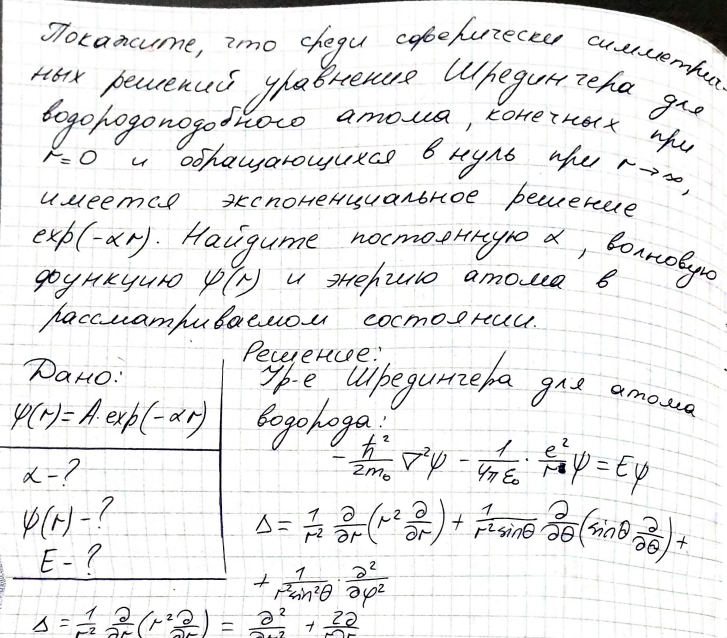 Покажите, что среди сферически симметрич-
ных решений уравнения Шредингера для
водородоподобного атома, конечных при
r=0 и обращающихся в нуль при r→∞,
имеется экспоненциальное решение
exp(-αr). Найдите постоянную α, волновую
функцию ψ(r) и энергию атома в
рассматриваемом состоянии.
Дано:
ψ(r)=A·exp(-αr)
α-?
ψ(r)-?
E-?
Решение:
Ур-е Шредингера для атома
водорода:
-ħ²/2m₀ ∇²ψ - 1/4πε₀ · e²/r ψ = Eψ
Δ = 1/r² ∂/∂r (r² ∂/∂r) + 1/r²sinθ ∂/∂θ (sinθ ∂/∂θ) +
+ 1/r²sin²θ · ∂²/∂φ²
Δ = 1/r² ∂/∂r (r² ∂/∂r) = ∂²/∂r² + 2∂/r∂r